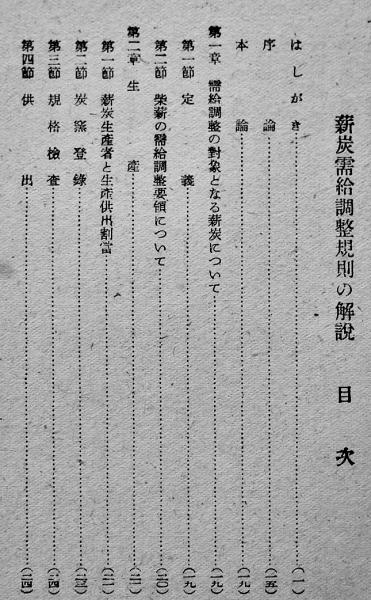 薪炭需給調整規則の解說　目次
はしがき……(一)
序論……(五)
本論……(一九)
第一章　需給調整の對象となる薪炭について……(一九)
第一節　定義……(一九)
第二節　柴薪の需給調整要領について……(二〇)
第二章　生産……(二一)
第一節　薪炭生産者と生産供出割當……(二一)
第二節　炭窯登錄……(二三)
第三節　規格檢査……(二四)
第四節　供出……(二四)